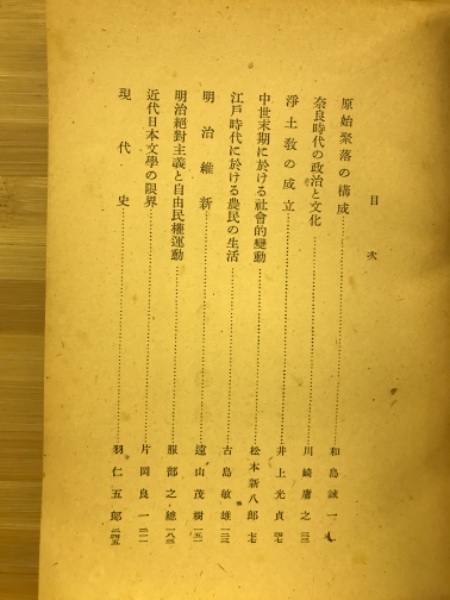 目次
原始聚落の構成……和島誠一 一
奈良時代の政治と文化……川崎庸之
淨土教の成立……井上光貞
中世末期に於ける社會的變動……松本新八郎
江戸時代に於ける農民の生活……古島敏雄
明治維新……遠山茂樹
明治絕對主義と自由民權運動……服部之總 一八三
近代日本文學の限界……片岡良一 二一一
現代史……羽仁五郎 二四五